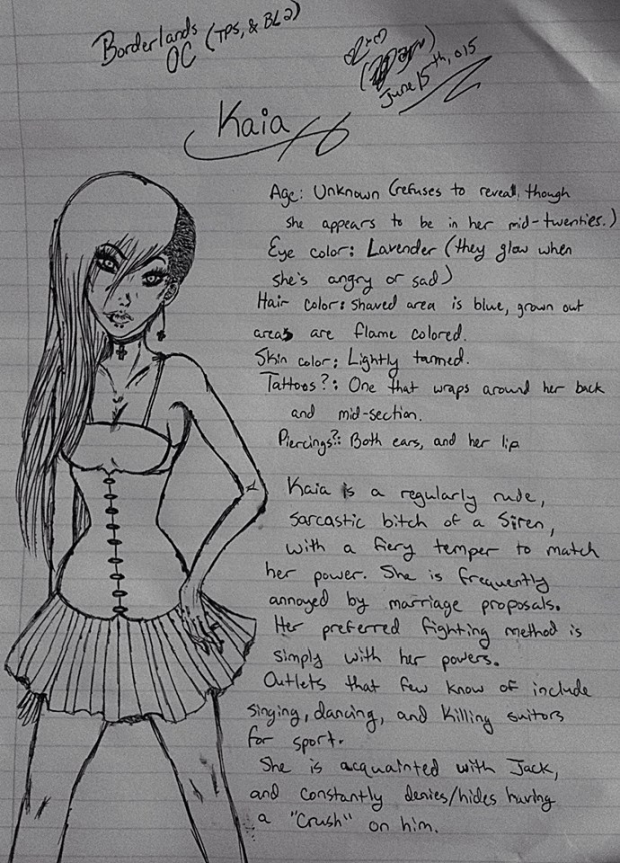 Borderlands (TPS, & BL2)
OC
June 15th, 015
Kaia
Age: Unknown (refuses to reveal, though
she appears to be in her mid-twenties.)
Eye color: Lavender (they glow when
she's angry or sad)
Hair color: shaved area is blue, grown out
areas are flame colored.
Skin color: Lightly tanned.
Tattoos?: One that wraps around her back
and mid-section.
Piercings?: Both ears, and her lip
Kaia is a regularly rude,
sarcastic bitch of a Siren,
with a fiery temper to match
her power. She is frequently
annoyed by marriage proposals.
Her preferred fighting method is
simply with her powers.
Outlets that few know of include
singing, dancing, and killing suitors
for sport.
She is acquainted with Jack,
and constantly denies/hides having
a "crush" on him.